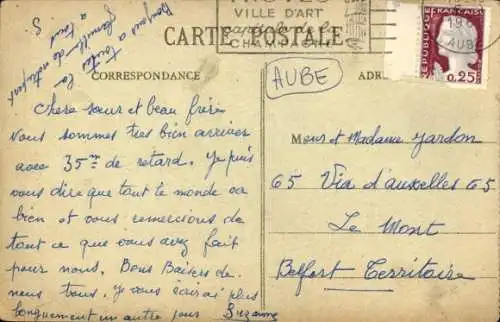 TROYES
VILLE D'ART
capitale de la
CHAMPAGNE
19
AUBE
REPUBLIQUE FRANÇAISE
0,25
CARTE POSTALE
CORRESPONDANCE
ADR
AUBE
Bonjour a toute la
famille de notre part
a tous
S.
Chere sœur et beau frère
Nous sommes tres bien arriver
avec 35 mn de retard. Je puis
vous dire que tout le monde va
bien et vous remercions de
tout ce que vous avez fait
pour nous. Bons Baisers de
nous tous. Je vous écirai plus
longuement un autre jour Suzanne
Meur et Madame Jardon
65 Via d'auxelles 65
Le Mont
Belfort Territoire